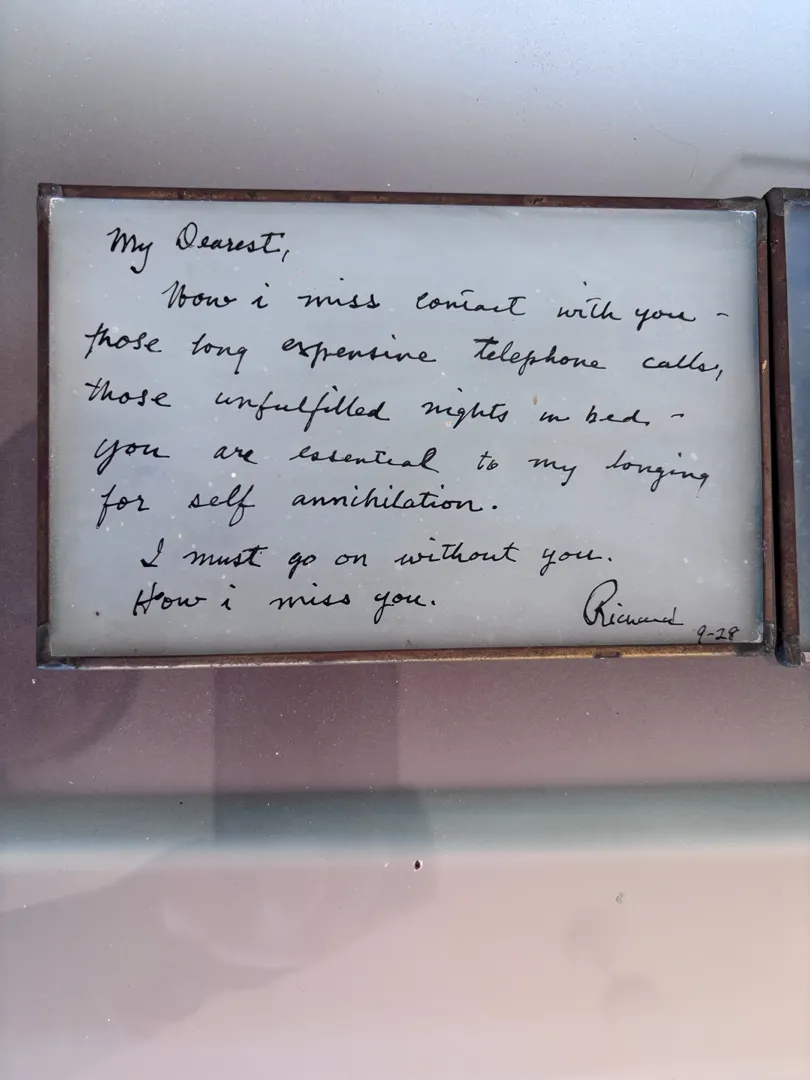 My Dearest,
How i miss contact with you -
those long expensive telephone calls,
those unfulfilled nights in bed -
you are essential to my longing
for self annihilation.
I must go on without you.
How i miss you.
Richard
9-28